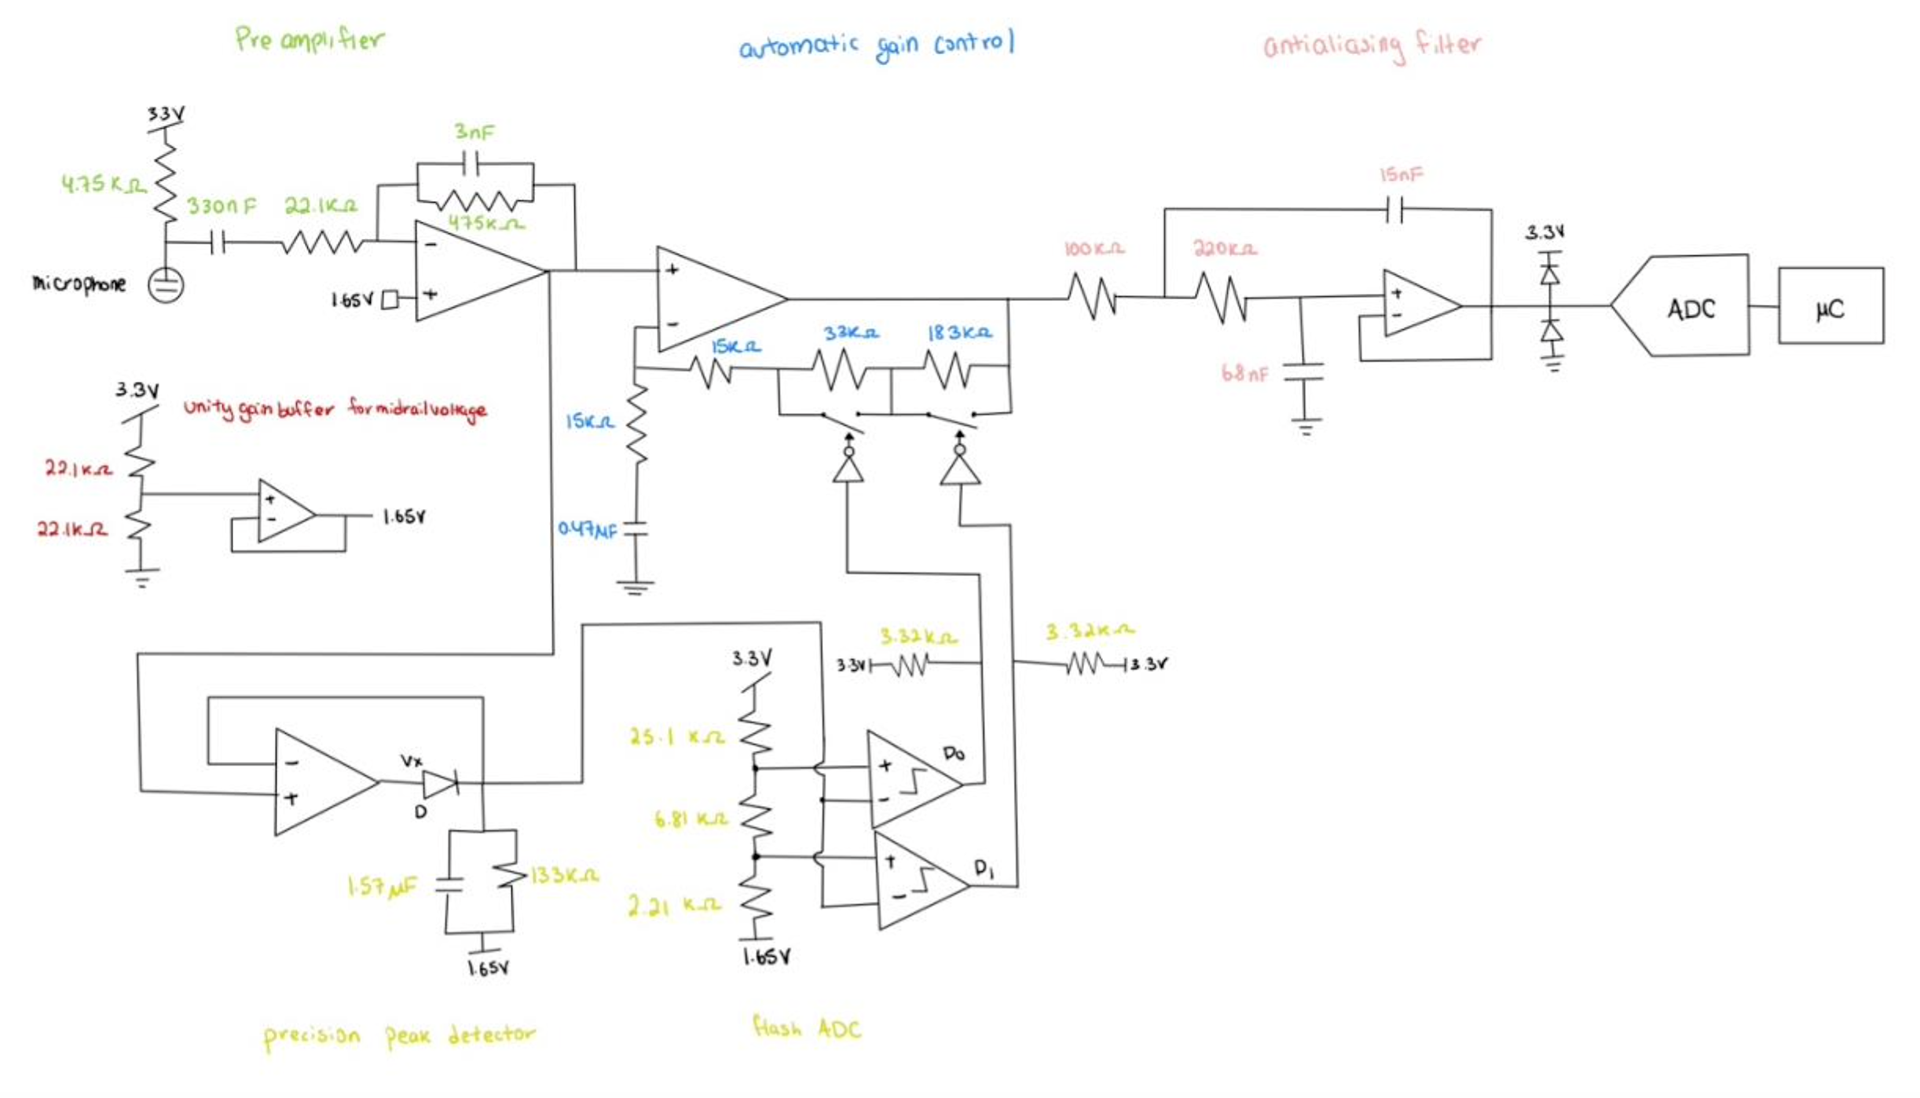 Preamplifier
automatic gain control
antialiasing filter
3.3V
3nF
4.75KΩ
330nF
22.1KΩ
475KΩ
microphone
1.65V
15nF
100KΩ
220KΩ
3.3V
ADC
μC
68nF
15KΩ
33KΩ
183KΩ
15KΩ
0.47μF
3.3V
unity gain buffer for midrail voltage
22.1KΩ
22.1KΩ
1.65V
3.32KΩ
3.32KΩ
3.3V
3.3V
3.3V
25.1 KΩ
6.81 KΩ
2.21 KΩ
1.65V
D0
D1
Vx
D
1.57μF
133KΩ
1.65V
precision peak detector
flash ADC